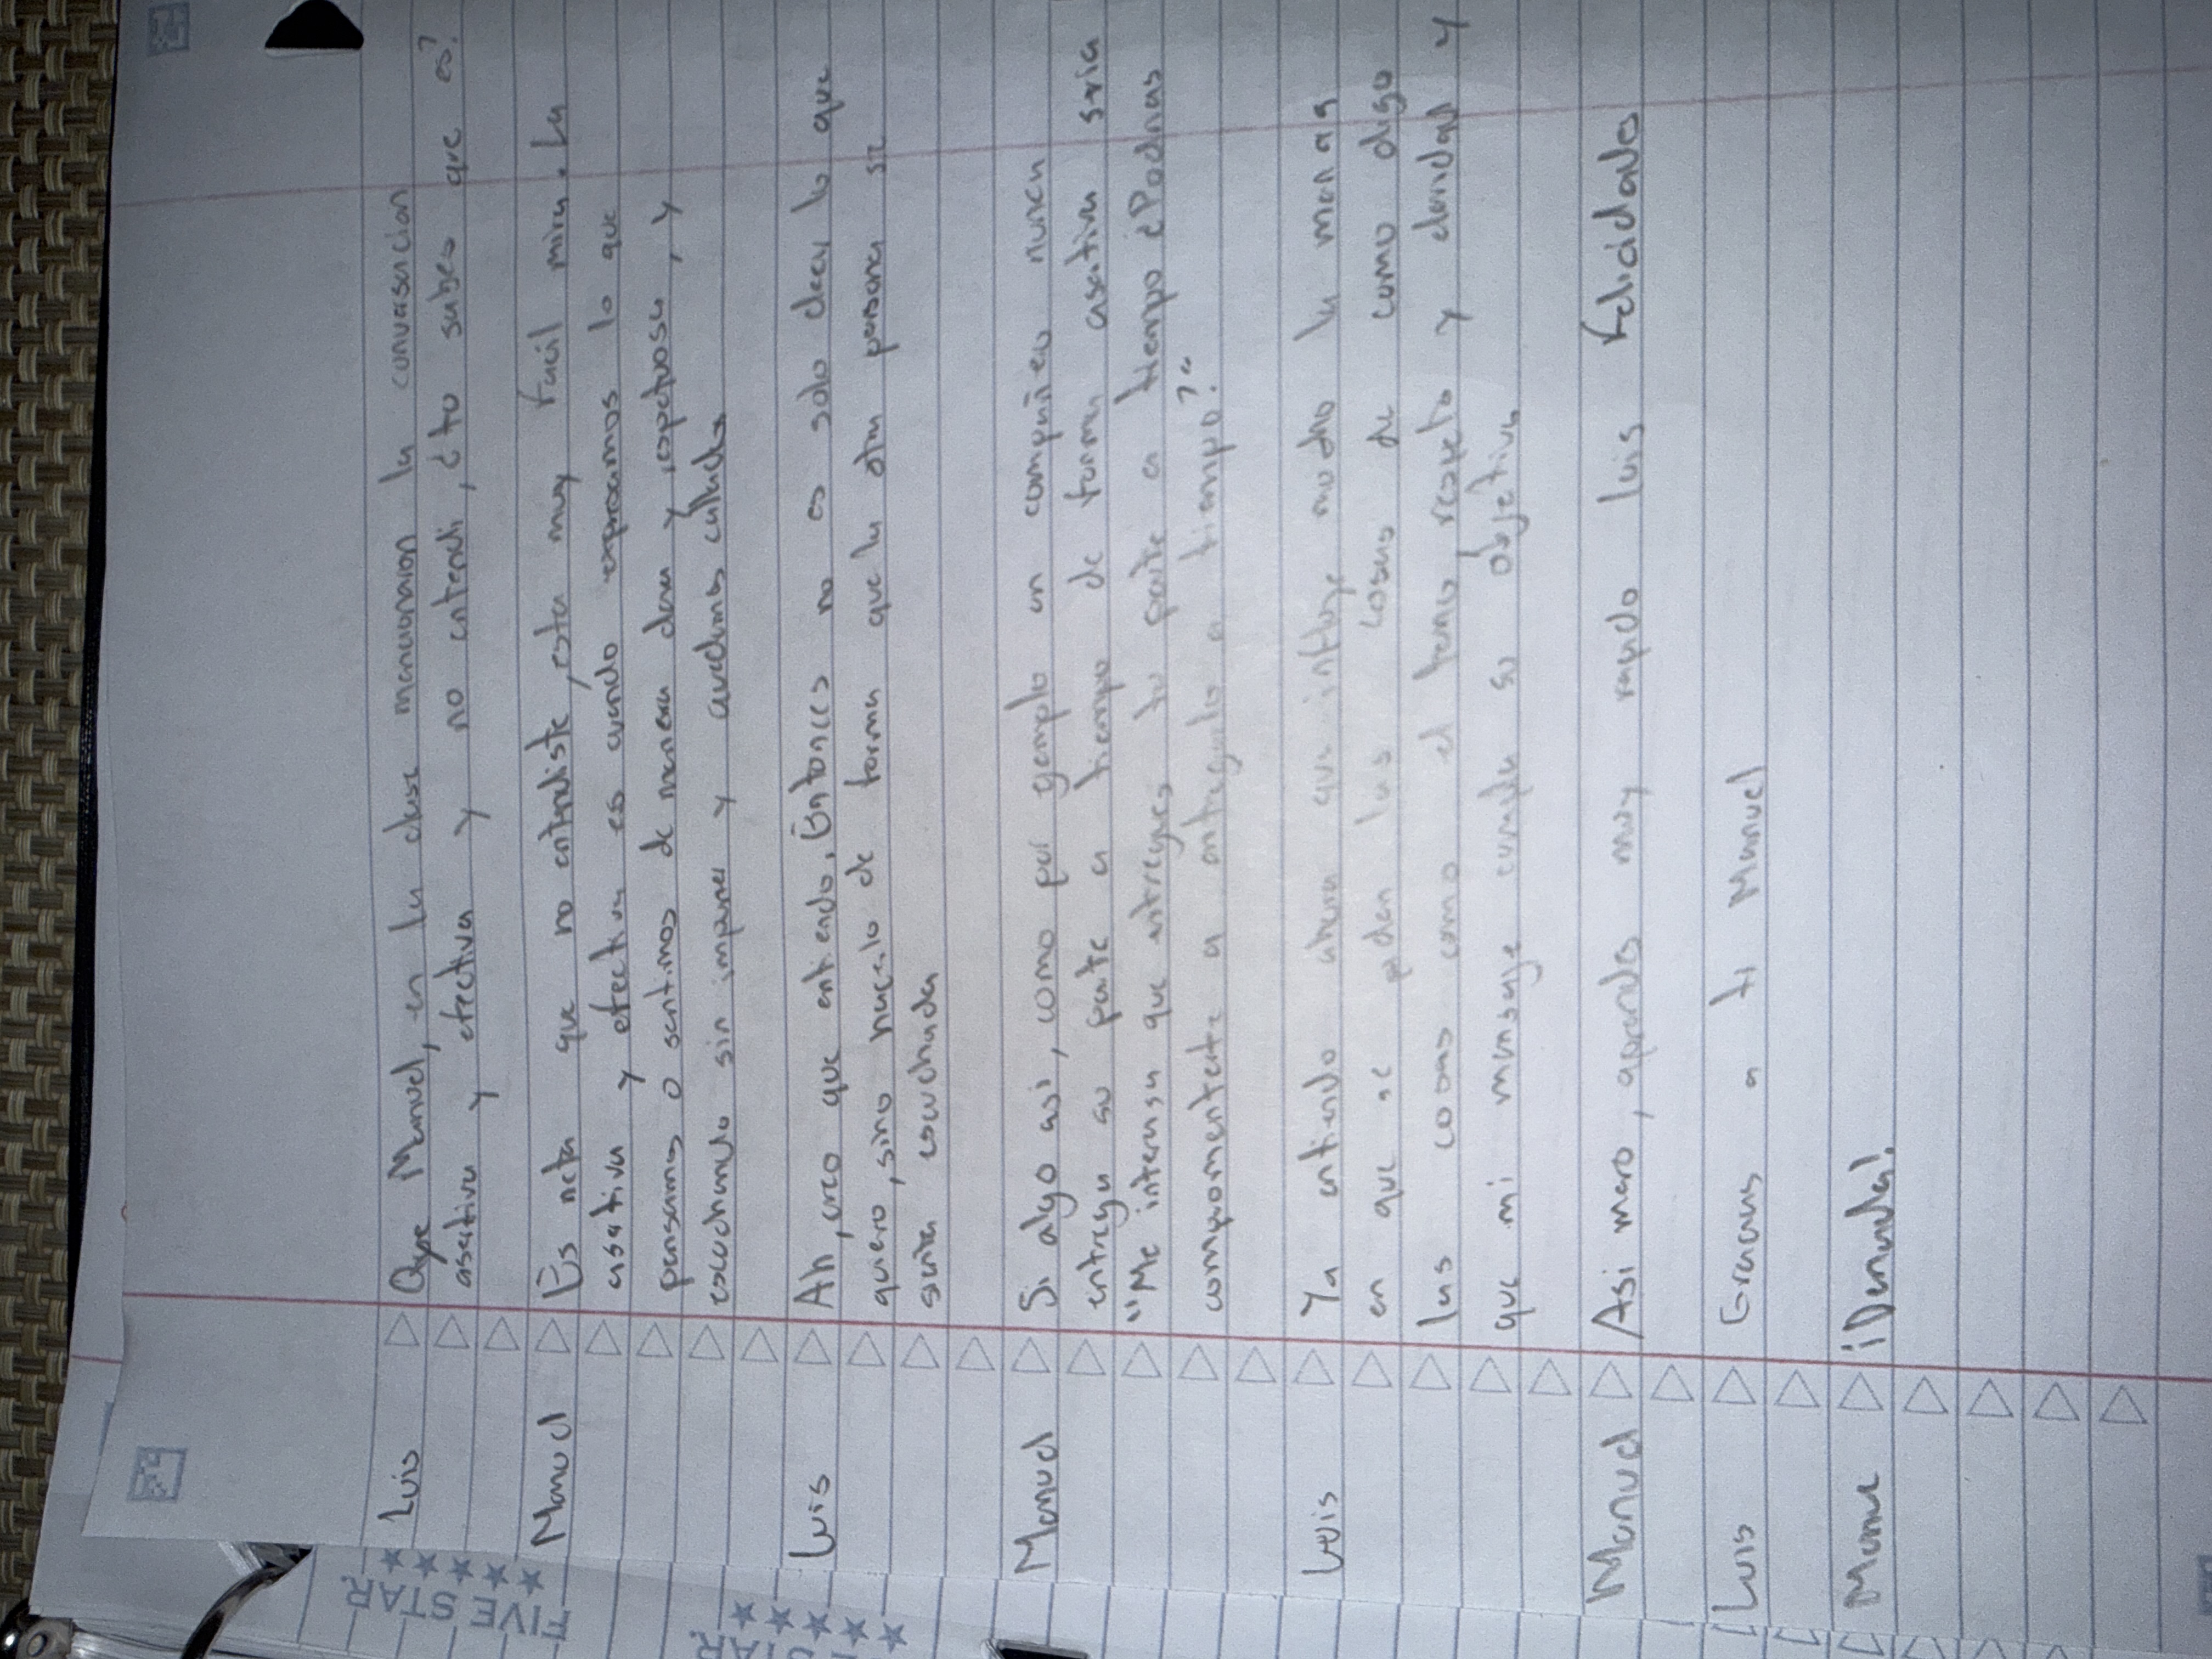 Luis Oye Manuel, en la clase mencionaron la conversacion
asertiva y efectiva y no entendi, ¿tu sabes que es?
Manuel Es neta que no entendiste, esta muy facil mira. La
asertiva y efectiva es cuando expresamos lo que
pensamos o sentimos de manera clara y respetuosa, y
escuchando sin imponer y quedarnos callados
Luis Ah, creo que entiendo. Entonces no es solo decir lo que
quiero, sino hacerlo de forma que la otra persona se
sienta escuchada
Manuel Si algo asi, como por ejemplo un compañero nunca
entrega su parte a tiempo de forma asertiva seria
"Me interesa que entregues tu parte a tiempo ¿Podrias
comprometerte a entregarlo a tiempo?"
Luis Ya entiendo ahora que influye mucho la manera
en que se piden las cosas de como digo
las cosas como el tono, respeto y claridad y
que mi mensaje cumpla su objetivo
Manuel Asi mero, aprendes muy rapido luis felicidades
Luis Gracias a ti Manuel
Manuel ¡Denada!
FIVE STAR